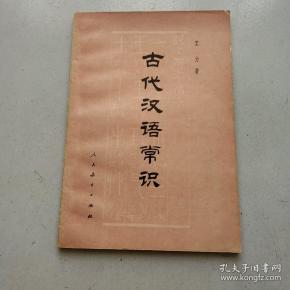 王力著
古代汉语常识
人民教育出版社
孔夫子旧书网